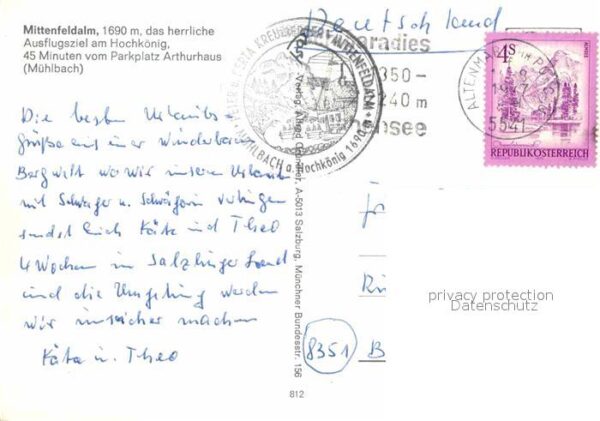 Mittenfeldalm, 1690 m, das herrliche
Ausflugsziel am Hochkönig,
45 Minuten vom Parkplatz Arthurhaus
(Mühlbach)
Deutschland
radies
350 –
240 m
nsee
MITTENFELDALM
MÜHLBACH a. Hochkönig 1690 m
ALTENMARKT
5541
4S
REPUBLIK ÖSTERREICH
Die besten Urlaubs-
grüße aus einer wunderbaren
Bergwelt wo wir unseren Urlaub
mit Schwager u. Schwägerin verbringen
sendet Euch Käta und Theo
4 Wochen im Salzburger Land
und die Umgebung werden
wir unsicher machen
Käta u. Theo
A-5013 Salzburg, Münchner Bundesstr. 156
8351 B
812
privacy protection
Datenschutz